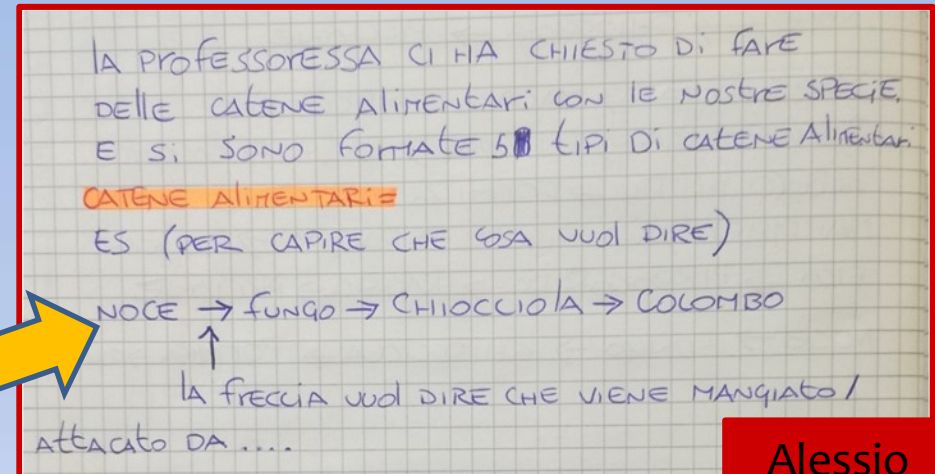 lA PROfESSORESSA CI HA CHIESTO Di fARE
DEllE CATENE AliMENtARi CON lE NOStRE SPECiE.
E Si SONO FORMATE 5 tiPi Di CATENE AliMENtARi
CATENE AliMENTARi=
ES (PER CAPIRE CHE COSA VUOl DIRE)
NOCE → fUNGO → CHIOCCIOlA → COLOMBO
↑
lA fRECCIA VUOl DIRE CHE VIENE MANGIATO/
AttACATO DA ....
Alessio